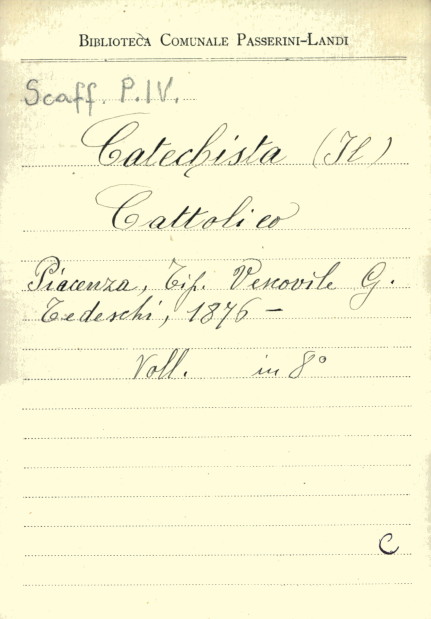 BIBLIOTECA COMUNALE PASSERINI-LANDI
Scaff. P.IV.
Catechista (Il)
Cattolico
Piacenza, Tip. Vescovile G.
Tedeschi, 1876 —
Voll. in 8°
C